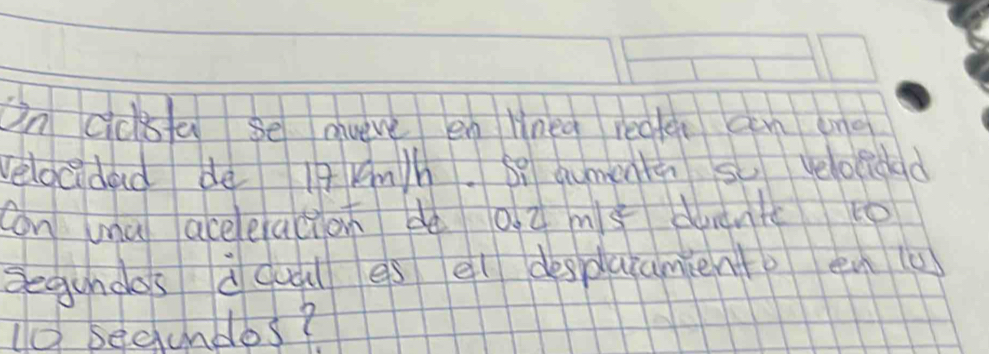 Un ciclista se mueve en línea recta con una
velocidad de 17 km/h. Si aumenta su velocidad
con una aceleración de 0.2 m/s durante 10
segundos ¿cual es el desplazamiento en los
10 segundos?